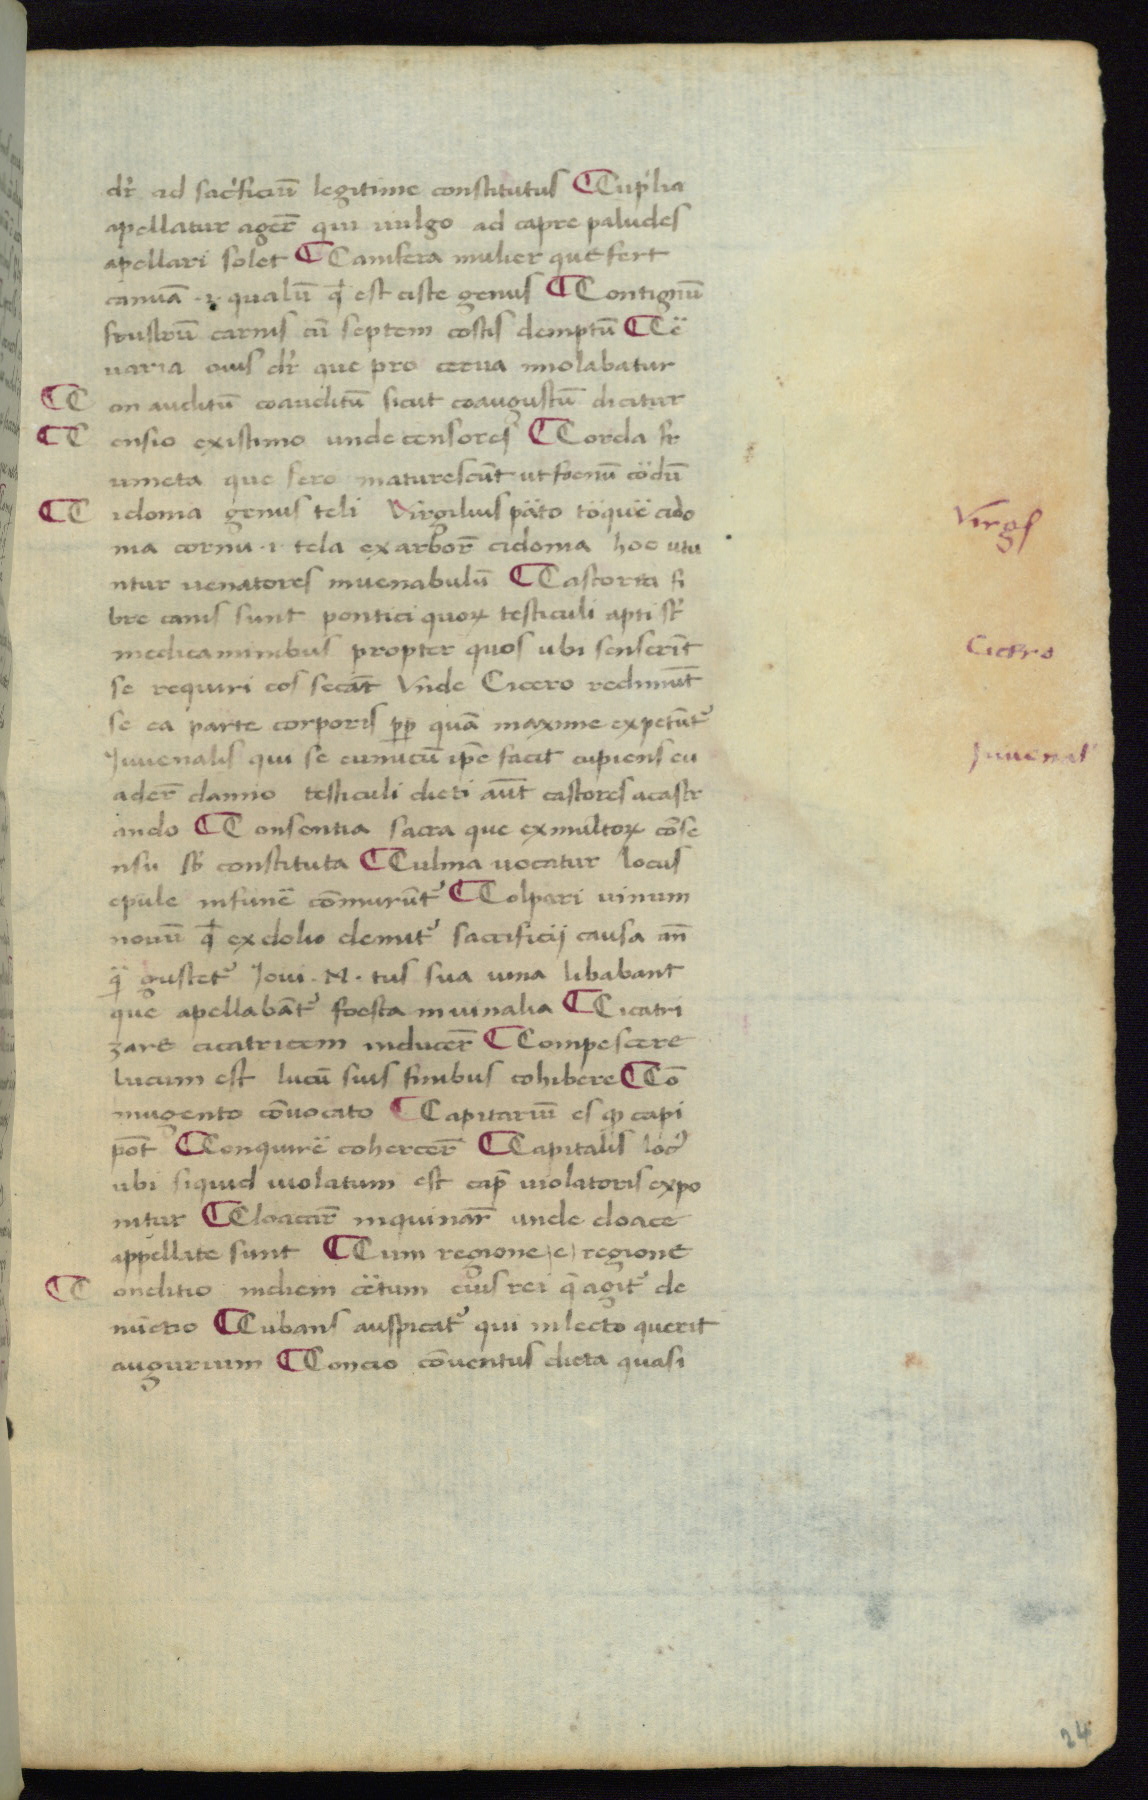 dr̄ ad sac̛ficiū legitime constitutus ⸿ Cup̛lia
apellatur ager̄ qui uulgo ad capre paludes
apellari solet ⸿ Canifera mulier que fert
canuā .i. qualū qđ est ciste genus ⸿ Contignū
frustrū carnis cū septem costis demptū ⸿ Cë
uaria ouis dr̄ que pro cerua imolabatur
⸿ C on auditū coauditū sicut coaugustū dicitur
⸿ C ensio existimo unde censores ⸿ Corda fr
umeta que sero maturescūt ut foenū cödū
⸿ C idoma genus teli Virgilius päto töquë cido
ma cornu .i. tela ex arbor̄ cidoma hoc utu
ntur uenatores inuenabulū ⸿ Castorea fi
bre canis sunt pontici quoꝝ testiculi apti st̄
medicaminibus propter quos ubi senserīt
se requiri eos secāt Vnde Cicero redimūt
se ea parte corporis pp̄ quā maxime expetūtᷣ
Juuenalis qui se eunucū ip̄e facit cupiens eu
ader̄ damno testiculi dicti aūt castores acastr
ando ⸿ C onsentia sacra que ex multoꝝ cōse
nsu st̄ constituta ⸿ Culina uocatur locus
epule in funē cōmurūtᷣ ⸿ Colpari uinum
nouū qđ ex dolio demitᷣ sacrificij causa an̄
q̈ gustetᷣ Joui . N . tus sua uina libabant
que apellabātᷣ foesta in uinalia ⸿ Cicatri
zare cicatricem inducer̄ ⸿ Compescere
lucum est lucū suis finibus cohibere ⸿ Cō
mugento cōuocato ⸿ Capitariū es qđ capi
pōt ⸿ Conquirë cohercer̄ ⸿ Capitalis loc̛
ubi siquid uiolatum est cap̄ uiolatoris expo
nitur ⸿ Cloacar̄ inquinar̄ unde cloace
appellate sunt ⸿ Cum regione |e| regione
⸿ C onditio indiem cëtum eius rei q̄ agitᷣ de
nūctio ⸿ Cubans auspicatᷣ qui in lecto querit
augurium ⸿ Concio cōuentus dicta quasi
Virgs
Cicero
Juuenal̛
24